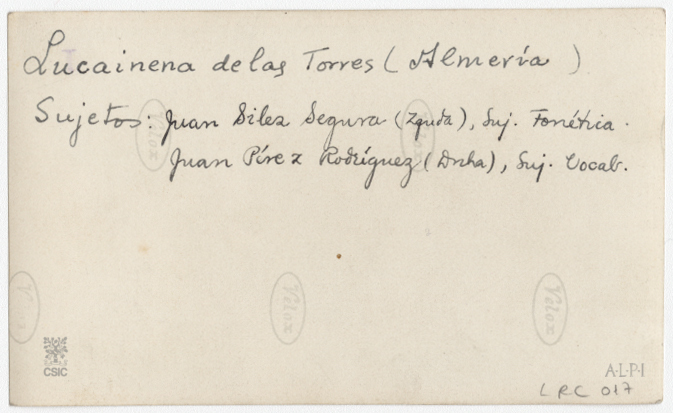 Lucainena de las Torres (Almería)
Sujetos: Juan Siles Segura (Izquda), Suj. Fonética.
Juan Pérez Rodríguez (Drcha), Suj. Vocab.
Velox
Velox
Velox
Velox
Velox
CSIC
A·L·P·I
LRC 017